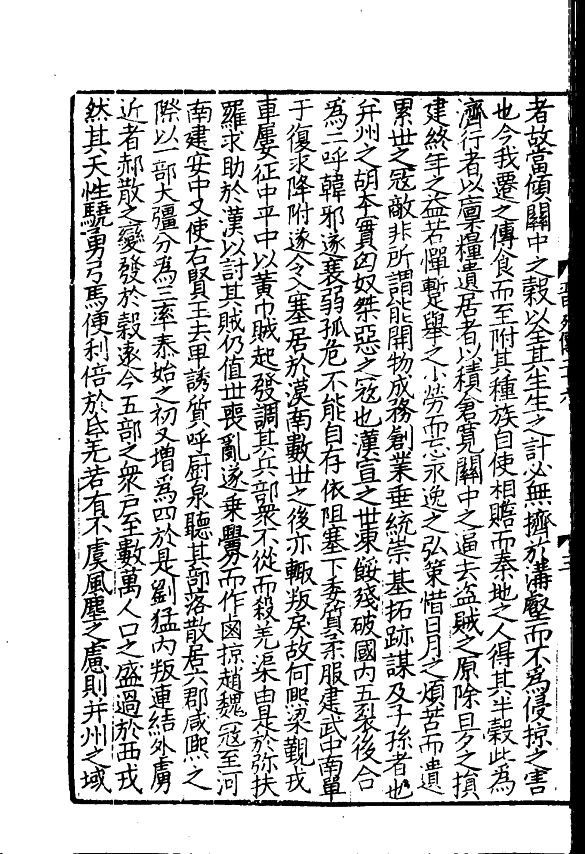 者故當傾關中之穀以全其生生之計必無擠於溝壑而不爲侵掠之害
也今我遷之傳食而至附其種族自使相贍而秦地之人得其半穀此爲
濟行者以廩糧遺居者以積倉寬關中之逼去盜賊之原除旦夕之損
建終年之益若憚蹔舉之小勞而忘永逸之弘策惜日月之煩苦而遺
累世之寇敵非所謂能開物成務創業垂統崇基拓跡謀及子孫者也
并州之胡本實匈奴桀惡之寇也漢宣之世凍餒殘破國內五裂後合
爲二呼韓邪遂衰弱孤危不能自存依阻塞下委質柔服建武中南單
于復求降附遂令入塞居於漠南數世之後亦輒叛戾故何熙梁覲戎
車屢征中平中以黃巾賊起發調其兵部衆不從而殺羌渠由是於彌扶
羅求助於漢以討其賊仍值世喪亂遂乘釁而作鹵掠趙魏寇至河
南建安中又使右賢王去卑誘質呼廚泉聽其部落散居六郡咸熙之
際以一部大彊分爲三率泰始之初又增爲四於是劉猛內叛連結外虜
近者郝散之變發於穀遠今五部之衆戶至數萬人口之盛過於西戎
然其天性驍勇弓馬便利倍於氐羌若有不虞風塵之慮則并州之域